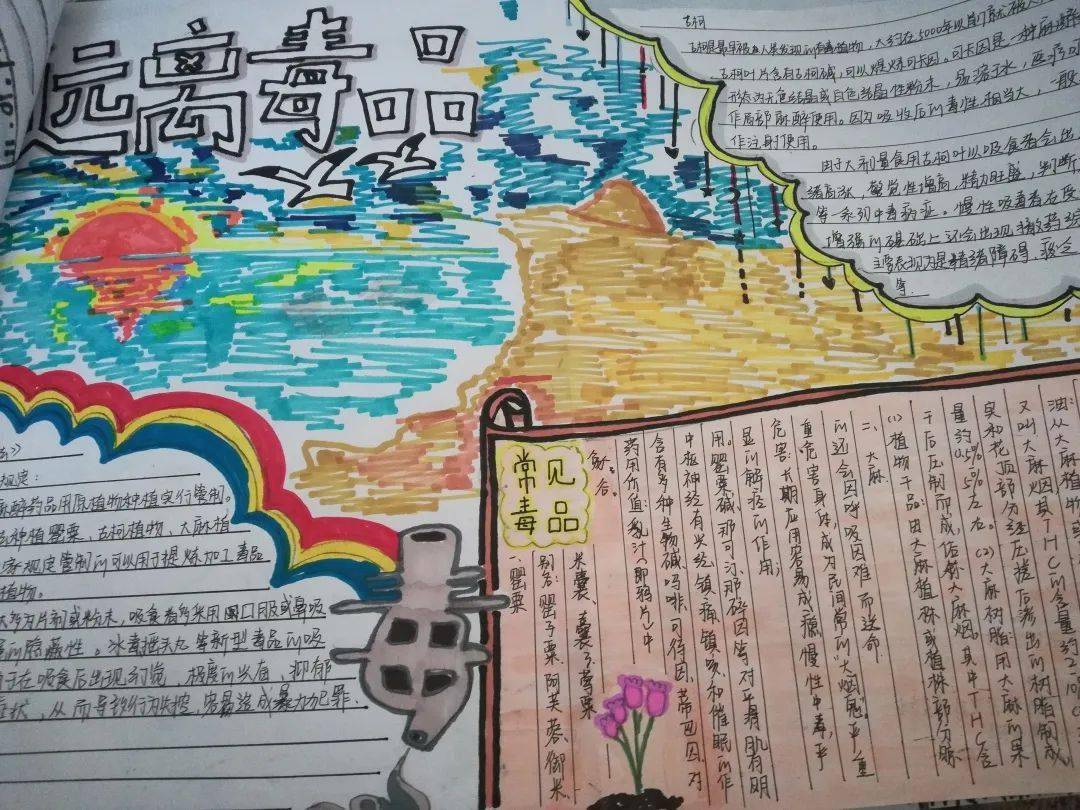 远离毒品
古柯
古柯是最早被人类发现的有毒植物，大约在5000年以前就被人
古柯叶片含有古柯碱，可以提炼可卡因。可卡因是一种麻醉
形态为无色结晶或白色结晶性粉末，易溶于水，医疗
作局部麻醉使用。因为吸收后的毒性相当大，一般
作注射使用。
由于大剂量食用古柯叶以吸食者会出
绪高涨，警觉性增高，精力旺盛，判断
等一系列中毒症。慢性吸毒者在
增强的基础上还会出现
主要表现为是精神障碍
等
规定：
麻醉药品用原植物种植实行管制。
种植罂粟、古柯植物、大麻植
家规定管制的可以用于提炼加工毒品
植物。
大多为片剂或粉末，吸食者多采用口服或鼻吸
的隐蔽性。冰毒摇头丸等新型毒品的吸
于在吸食后出现幻觉，极度的兴奋、抑郁
症状，从而导致行为失控，容易造成暴力犯罪。
常见
毒品
罂粟
别名：罂子粟、阿芙蓉、御米、
米囊、囊子、莺粟
药用价值：乳汁（即鸦片）中
含有多种生物碱吗啡、可待因、蒂巴因，对
中枢神经有兴奋、镇痛、镇咳和催眠的作
用。罂粟碱、那可汀、那碎因等对平滑肌有明
显的解痉的作用；
危害：长期应用容易成瘾，慢性中毒，严
重危害身体，成为民间常的“大烟鬼”严重
的还会因呼吸困难而送命
二、大麻
(1)植物干品：由大麻植株或植株部分晾
干后压制而成，俗称大麻烟。其中THC含
量约0.5%～5%左右。(2)大麻树脂：用大麻的果
实和花顶部分经压搓后渗出的树脂制成，
又叫大麻烟其THC的含量约2～10
油：从大麻植物